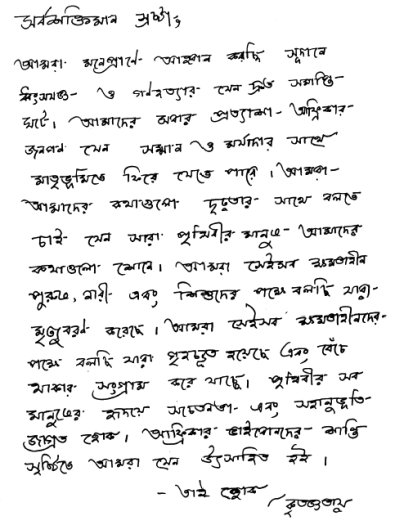 সর্বশক্তিমান স্রষ্টা,
আমরা মনেপ্রাণে আহ্বান করছি সুদানে
ধ্বংসযজ্ঞ ও গণহত্যার যেন দ্রুত সমাপ্তি
ঘটে। আমাদের সবার প্রত্যাশা আফ্রিকার
জনগণ যেন সম্মান ও মর্যাদার সাথে
মাতৃভূমিতে ফিরে যেতে পারে। আমরা
আমাদের কথাগুলো দৃঢ়তার সাথে বলতে
চাই যেন সারা পৃথিবীর মানুষ আমাদের
কথাগুলো শোনে। আমরা সেইসব ক্ষমতাহীন
পুরুষ, নারী এবং শিশুদের পক্ষে বলছি যারা
মৃত্যুবরণ করেছে। আমরা সেইসব ক্ষমতাহীনদের
পক্ষে বলছি যারা গৃহচ্যুত হয়েছে এবং বেঁচে
থাকার সংগ্রাম করে যাচ্ছে। পৃথিবীর সব
মানুষের হৃদয়ে সচেতনতা এবং সহানুভূতি
জাগ্রত হোক। আফ্রিকার ভাইবোনদের শান্তি
সৃষ্টিতে আমরা যেন উৎসাহিত হই।
- তাই হোক